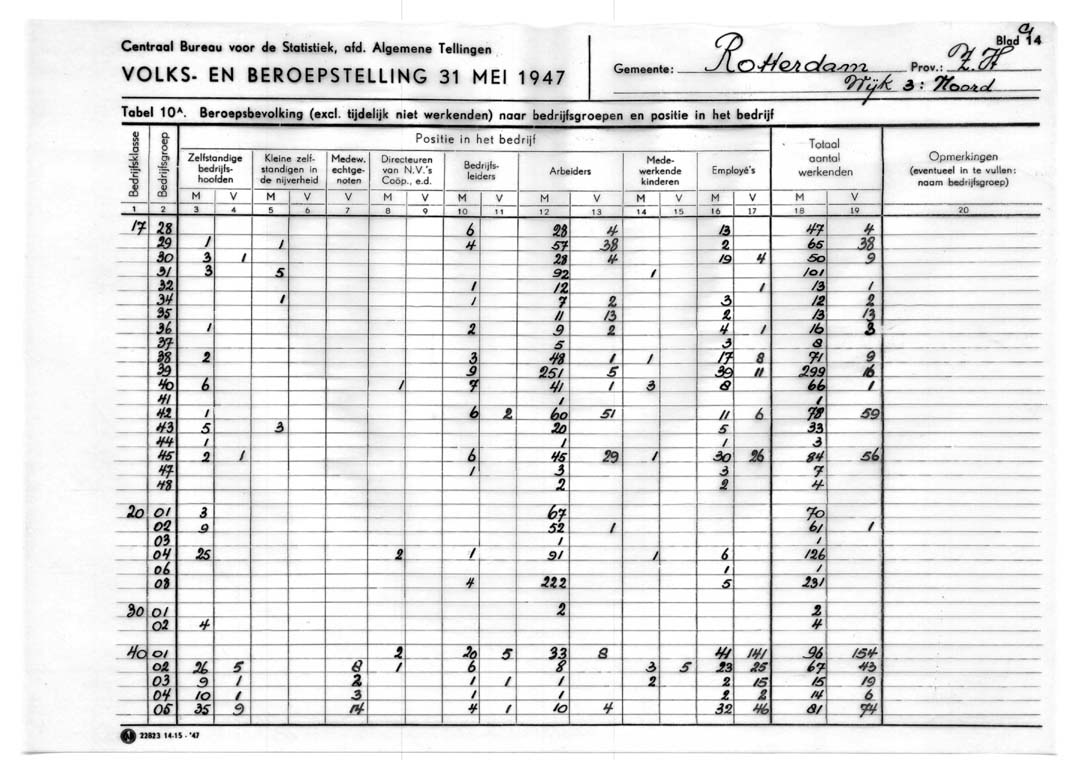 Blad 14
Centraal Bureau voor de Statistiek, afd. Algemene Tellingen
VOLKS- EN BEROEPSTELLING 31 MEI 1947
Gemeente: Rotterdam Prov.: Z.H
Wijk 3: Noord
Tabel 10A. Beroepsbevolking (excl. tijdelijk niet werkenden) naar bedrijfsgroepen en positie in het bedrijf
Bedrijfsklasse Bedrijfsgroep Positie in het bedrijf Totaal aantal werkenden Opmerkingen (eventueel in te vullen: naam bedrijfsgroep)
Zelfstandige bedrijfshoofden Kleine zelfstandigen in de nijverheid Medew. echtgenoten Directeuren van N.V.'s Coöp., e.d. Bedrijfsleiders Arbeiders Medewerkende kinderen Employé's
M V M V V M V M V M V M V M V M V
1 2 3 4 5 6 7 8 9 10 11 12 13 14 15 16 17 18 19 20
17 28 6 28 4 13 47 4
29 1 1 4 57 38 2 65 38
30 3 1 28 4 19 4 50 9
31 3 5 92 1 101
32 1 12 1 13 1
34 1 1 7 2 3 12 2
35 11 13 2 13 13
36 1 2 9 2 4 1 16 3
37 5 3 8
38 2 3 48 1 1 17 8 71 9
39 9 251 5 39 11 299 16
40 6 1 7 41 1 3 8 66 1
41 1 1
42 1 6 2 60 51 11 6 78 59
43 5 3 20 5 33
44 1 1 1 3
45 2 1 6 45 29 1 30 26 84 56
47 1 3 3 7
48 2 2 4
20 01 3 67 70
02 9 52 1 61 1
03 1 1
04 25 2 1 91 1 6 126
06 1 1
08 4 222 5 231
30 01 2 2
02 4 4
40 01 2 20 5 33 8 41 141 96 154
02 26 5 8 1 6 8 3 5 23 25 67 43
03 9 1 2 1 1 1 2 2 15 15 19
04 10 1 3 1 1 2 2 14 6
05 35 9 14 4 1 10 4 32 46 81 74
22823 14-15 - '47